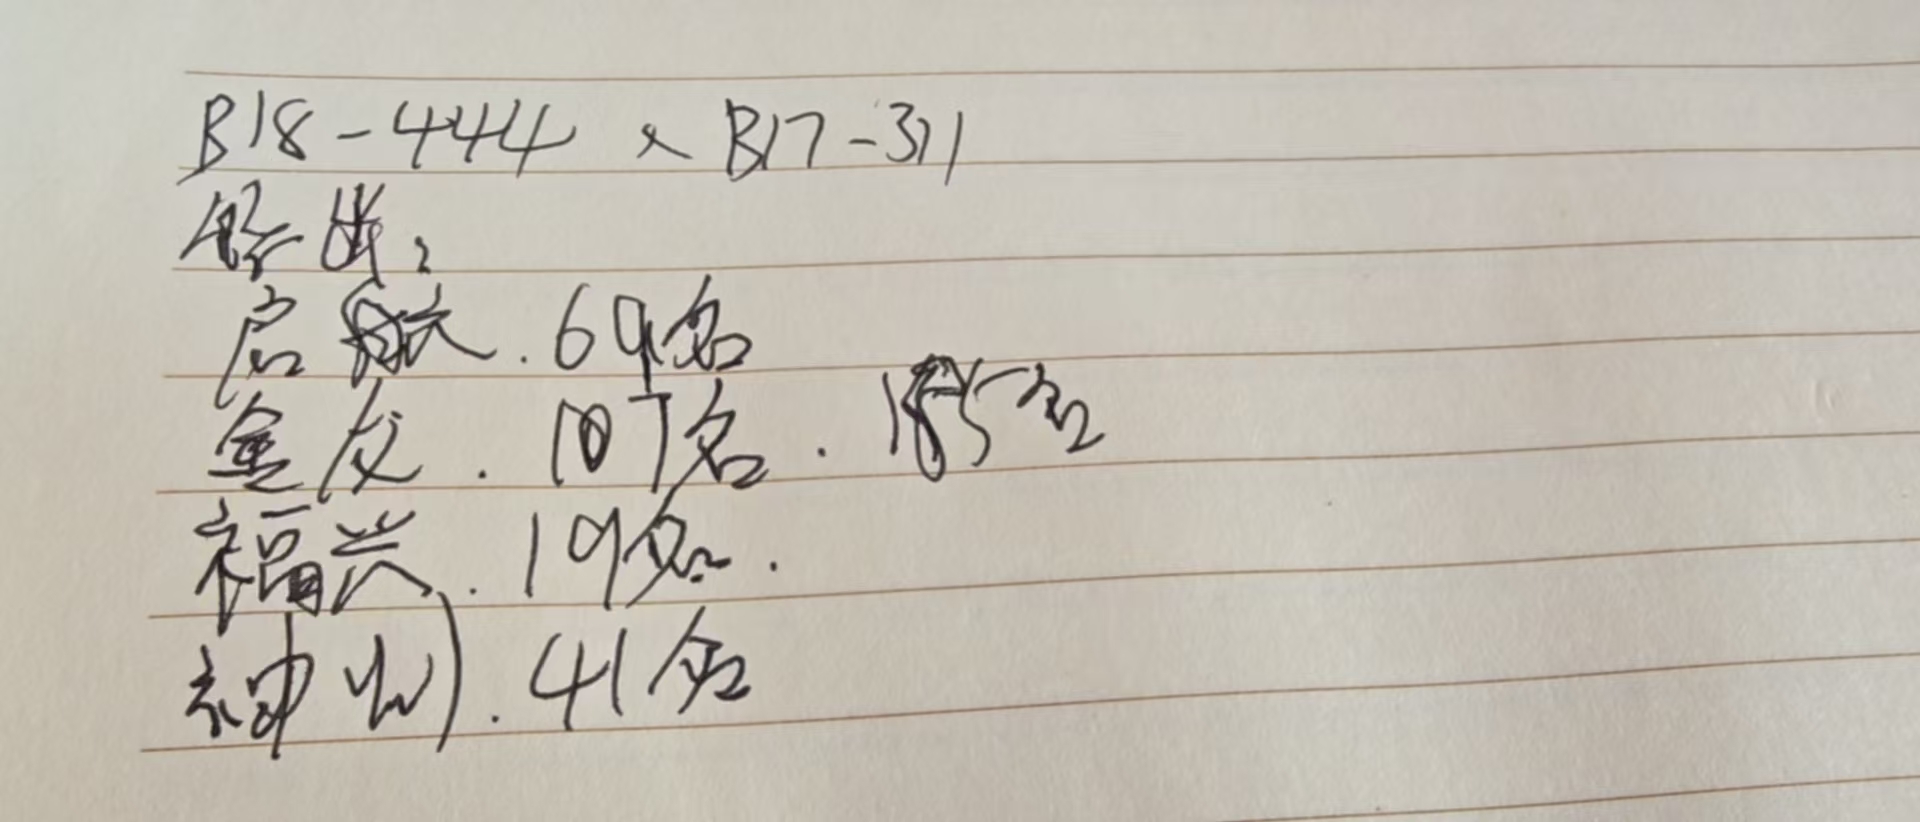 B18-444 × B17-311
作出:
启航. 69名
金友. 107名. 185名
福兴. 19名.
神州. 41名